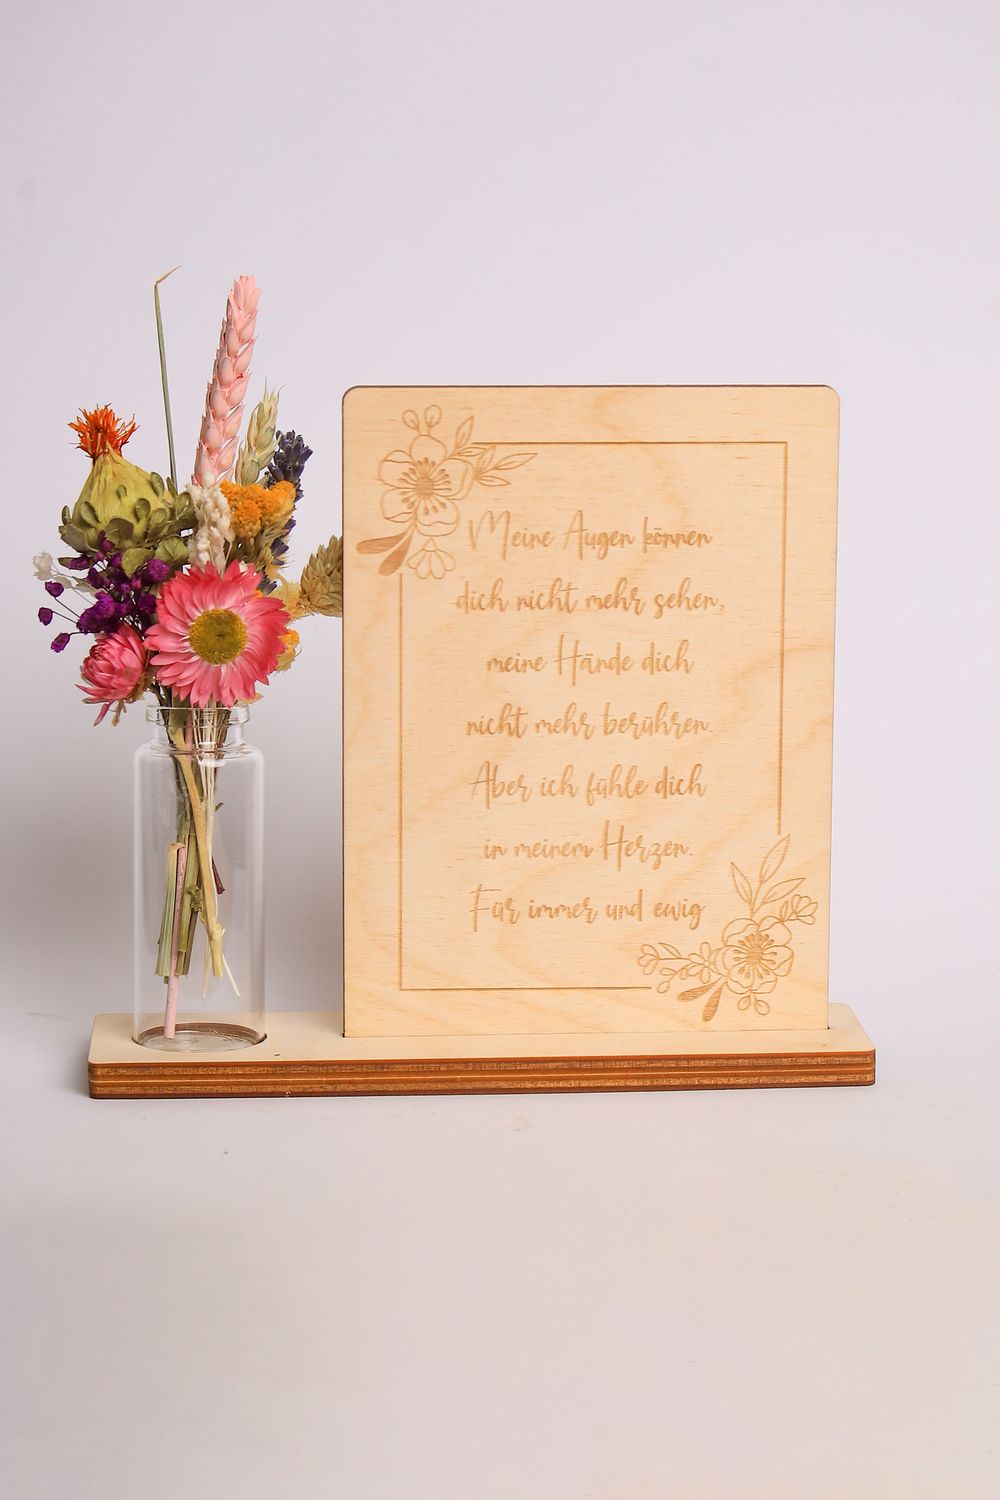 Meine Augen können
dich nicht mehr sehen,
meine Hände dich
nicht mehr berühren.
Aber ich fühle dich
in meinem Herzen.
Für immer und ewig